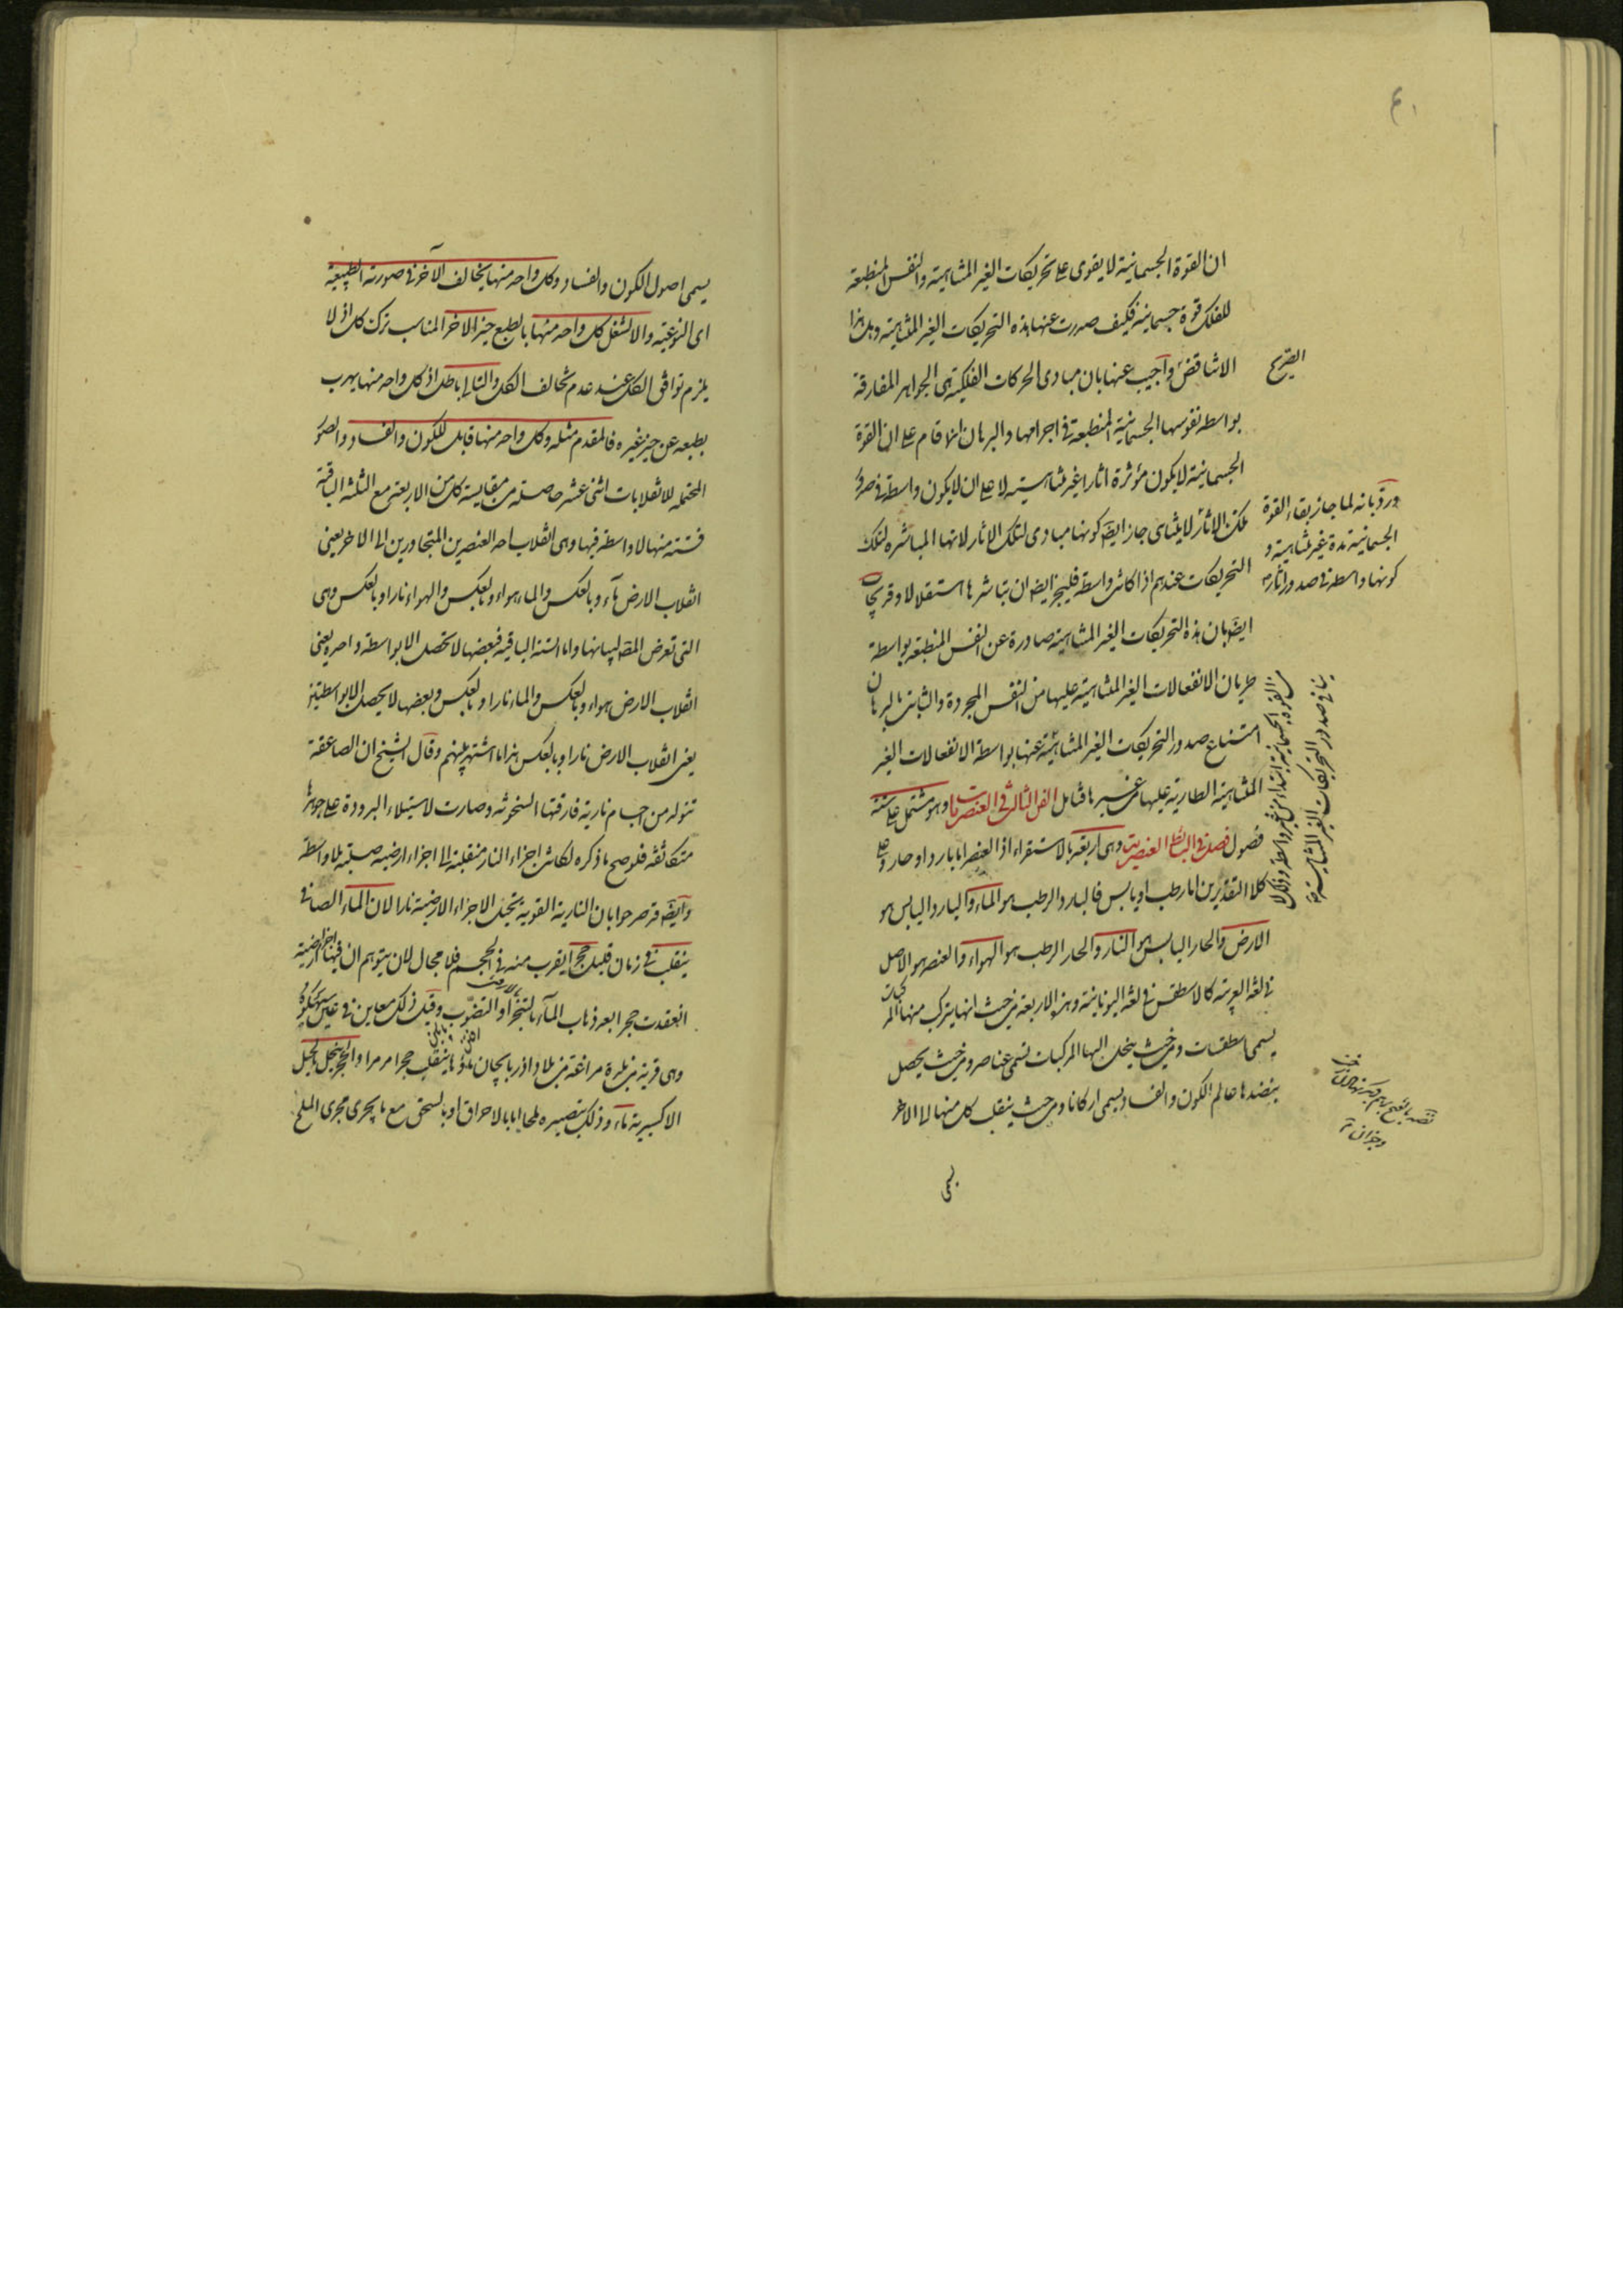 ان القوة الجسمانية لا يقوى على تحريكات الغير المتناهية والنفس المنطبعة
للفلك قوة جسمانية فكيف صدرت عنها هذه التحريكات الغير المتناهية وهل هذا
الا تناقض واجيب عنها بان مبادى الحركات الفلكية هى الجواهر المفارقة
بواسطه نفوسها الجسمانية المنطبعة فى اجرامها والبرهان انما قام على ان القوة
الجسمانية لا يكون مؤثرة اثارا غير متناهية لا على ان لا يكون واسطة فى صدور
تلك الاثار لا يتناهى جاز ايضا كونها مبادى لتلك الاثار لانها المباشرة لتلك
التحريكات عندهم اذا كانت واسطة فليجز ايضا ان تباشرها استقلالا وقد يجاب
ايضا بان هذه التحريكات الغير المتناهية صادرة عن النفس المنطبعة بواسطة
طريان الانفعالات الغير المتناهية عليها من النفس المجردة والثابت بالبرهان
امتناع صدور التحريكات الغير المتناهية عنها بواسطة الانفعالات الغير
المتناهية الطارية عليها من غيرها فتامل الفن الثالث فى العنصريات وهو مشتمل على ستة
فصول فصل فى البسائط العنصرية وهى اربعة بالاستقراء اذ العنصر اما بارد او حار وعلى
كلا التقديرين اما رطب او يابس فالبارد الرطب هو الماء والبارد اليابس هو
الارض والحار اليابس هو النار والحار الرطب هو الهواء والعنصر هو الاصل
فى لغة العربية كالاسطقس فى لغة اليونانية وهذه الاربعة من حيث انها يتركب منها المركبات
يسمى اسطقسات ومن حيث ينحل اليها المركبات تسمى عناصر ومن حيث يحصل
بنضدها عالم الكون والفساد يسمى اركانا ومن حيث ينقلب كل منها الى الاخر
يسمى
الصريح
ورد بانه لما جاز بقاء القوة
الجسمانية مدة غير متناهية و
كونها واسطة فى صدور اثار
من القوة الجسمانية ابتداء من غير واسطة وذلك لا
ينافى صدور التحريكات الغير المتناهية
يسمى اصول الكون والفساد وكل واحد منها يخالف الآخر فى صورته الطبيعية
اى النوعية والا لشغل كل واحد منها بالطبع حيز الاخر المناسب ترك كل اذ لا
يلزم توافق الكل عند عدم تخالف الكل والتالى باطل اذ كل واحد منها يهرب
بطبعه عن حيز غيره فالمقدم مثله وكل واحد منها قابل للكون والفساد والصور
المحتملة للانقلابات اثنى عشر حاصلة من مقايسة كل من الاربعة مع الثلثة الباقية
فستة منها لا واسطة فيها وهى انقلاب احد العنصرين المتجاورين الى الاخر يعنى
انقلاب الارض ماء وبالعكس والماء هواء وبالعكس والهواء نارا وبالعكس وهى
التى تعرض المصـ لبيانها واما الستة الباقية فبعضها لا تحصل الا بواسطة واحدة يعنى
انقلاب الارض هواء وبالعكس والماء نارا وبالعكس وبعضها لا يحصل الا بواسطتين
يعنى انقلاب الارض نارا وبالعكس هذا ما اشتهر بينهم وقال الشيخ ان الصاعقة
تتولد من اجسام نارية فارقتها السخونة وصارت لاستيلاء البرودة على جوهرها
متكاثفة فلو صح ما ذكره لكانت اجزاء النار منقلبة الى اجزاء ارضية صلبة بلا واسطة
وايضا قد صرحوا بان النارية القوية تحيل الاجزاء الارضية نارا لان الماء الصافى
ينقلب فى زمان قليل حجرا يقرب منه فى الحجم فلا مجال لان يتوهم ان فيها اجزاء ارضية
انعقدت حجرا بعد ذهاب الماء بالتبخر او النضوب وقيل ذلك معاين فى عين سيهكوه
وهى قرية من بلدة مراغة من بلاد اذربايجان ماؤها ينقلب حجرا مرمرا والحجر ينحل بالحيل
الاكسيرية ماء وذلك بتصييره ملحا اما بالاحراق او بالسحق مع ما يجرى مجرى الملح